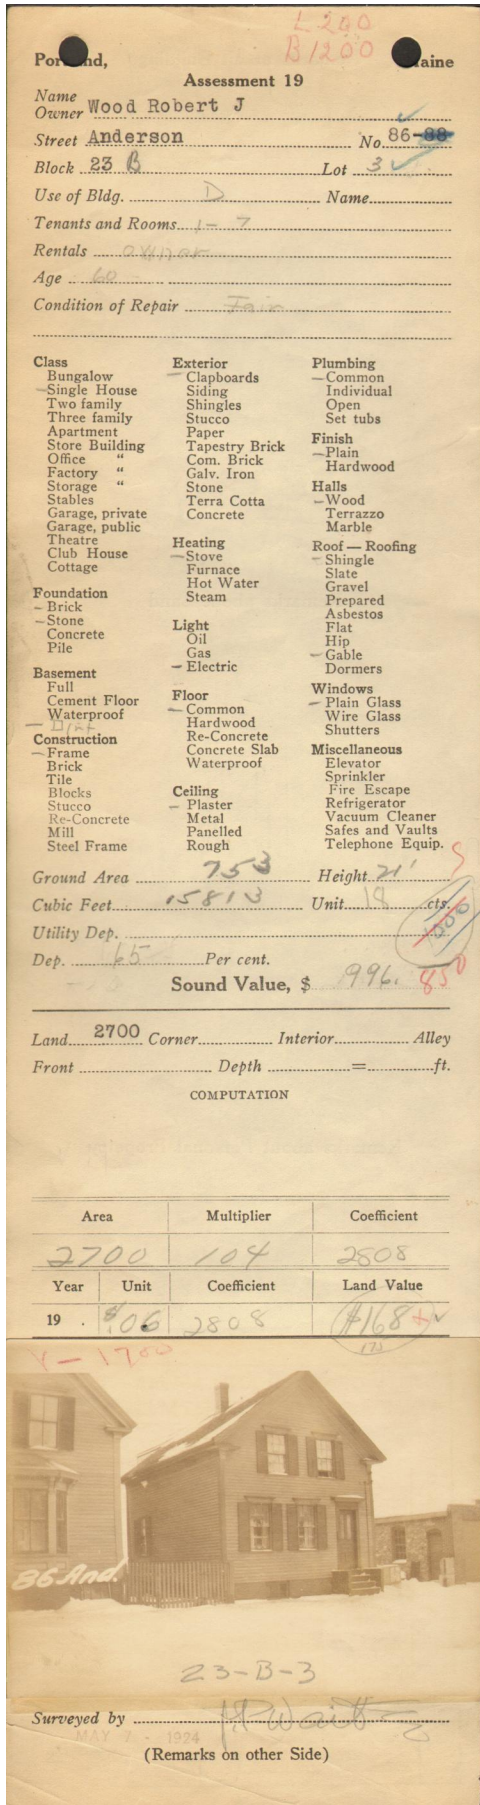 L 200
B 1200
Portland, Maine
Assessment 19
Name
Owner Wood Robert J
Street Anderson No. 86-88
Block 23 B Lot 3
Use of Bldg. D Name
Tenants and Rooms 1-7
Rentals owner
Age 60
Condition of Repair Fair
Class
Bungalow
Single House
Two family
Three family
Apartment
Store Building
Office "
Factory "
Storage "
Stables
Garage, private
Garage, public
Theatre
Club House
Cottage
Foundation
Brick
Stone
Concrete
Pile
Basement
Full
Cement Floor
Waterproof
Dirt
Construction
Frame
Brick
Tile
Blocks
Stucco
Re-Concrete
Mill
Steel Frame
Exterior
Clapboards
Siding
Shingles
Stucco
Paper
Tapestry Brick
Com. Brick
Galv. Iron
Stone
Terra Cotta
Concrete
Heating
Stove
Furnace
Hot Water
Steam
Light
Oil
Gas
Electric
Floor
Common
Hardwood
Re-Concrete
Concrete Slab
Waterproof
Ceiling
Plaster
Metal
Panelled
Rough
Plumbing
Common
Individual
Open
Set tubs
Finish
Plain
Hardwood
Halls
Wood
Terrazzo
Marble
Roof — Roofing
Shingle
Slate
Gravel
Prepared
Asbestos
Flat
Hip
Gable
Dormers
Windows
Plain Glass
Wire Glass
Shutters
Miscellaneous
Elevator
Sprinkler
Fire Escape
Refrigerator
Vacuum Cleaner
Safes and Vaults
Telephone Equip.
Ground Area 753 Height 21'
Cubic Feet 15813 Unit 18 cts.
Utility Dep. 1000
Dep. 65 Per cent.
Sound Value, $ 996. 850
Land 2700 Corner Interior Alley
Front Depth = ft.
COMPUTATION
Area Multiplier Coefficient
2700 104 2808
Year Unit Coefficient Land Value
19 $.06 2808 $168
175
1700
86 And.
23-B-3
Surveyed by
MAY 7 - 1924
(Remarks on other Side)